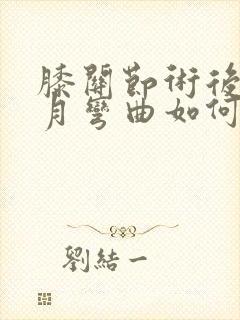 膝關節術後
月彎曲如何
劉結一